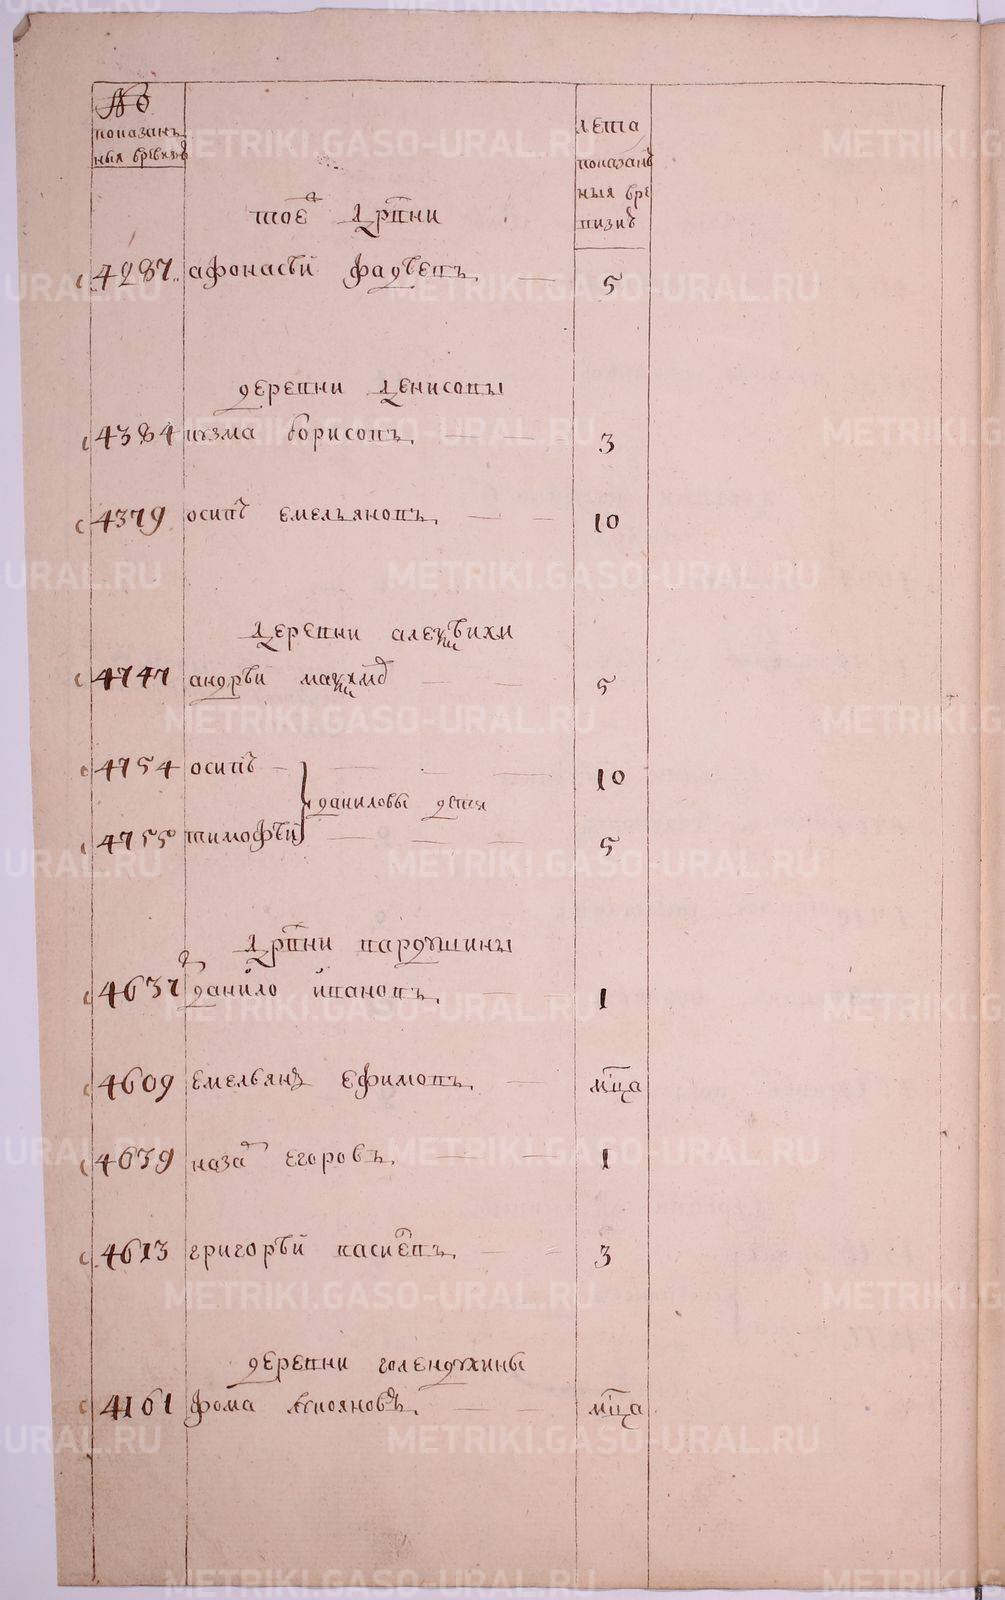 №
показан
ныя вревизиѣ
лета
показанъ
ныя вре
визиѣ
тоеѣ дрвни
4287 афонасѣй фадѣевъ 5
деревни денисовы
4384 кузма борисовъ 3
4379 осипъ емельяновъ 10
деревни алексѣихи
4747 андрѣй максимоⷡ 5
4754 осипъ 10
даниловы дети
4755 тимофѣй 5
дрвни кардушины
4637 данило ивановъ 1
4609 емельянъ ефимовъ мⷭца
4639 назаⷬ егоровъ 1
4613 григорѣй васиⷧевъ 3
деревни голендухины
4161 фома мца
METRIKI.GASO-URAL.RU